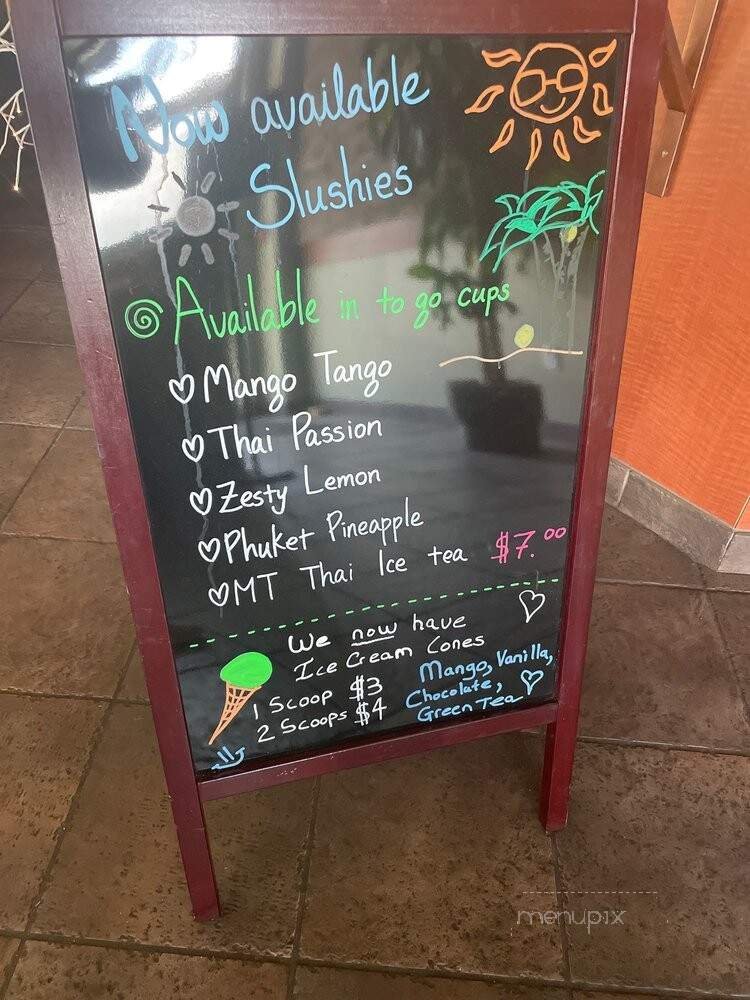 Now available
Slushies
Available in to go cups
Mango Tango
Thai Passion
Zesty Lemon
Phuket Pineapple
MT Thai Ice tea $7.00
We now have
Ice Cream Cones
1 Scoop $3
2 Scoops $4
Mango, Vanilla,
Chocolate,
Green Tea
menupix